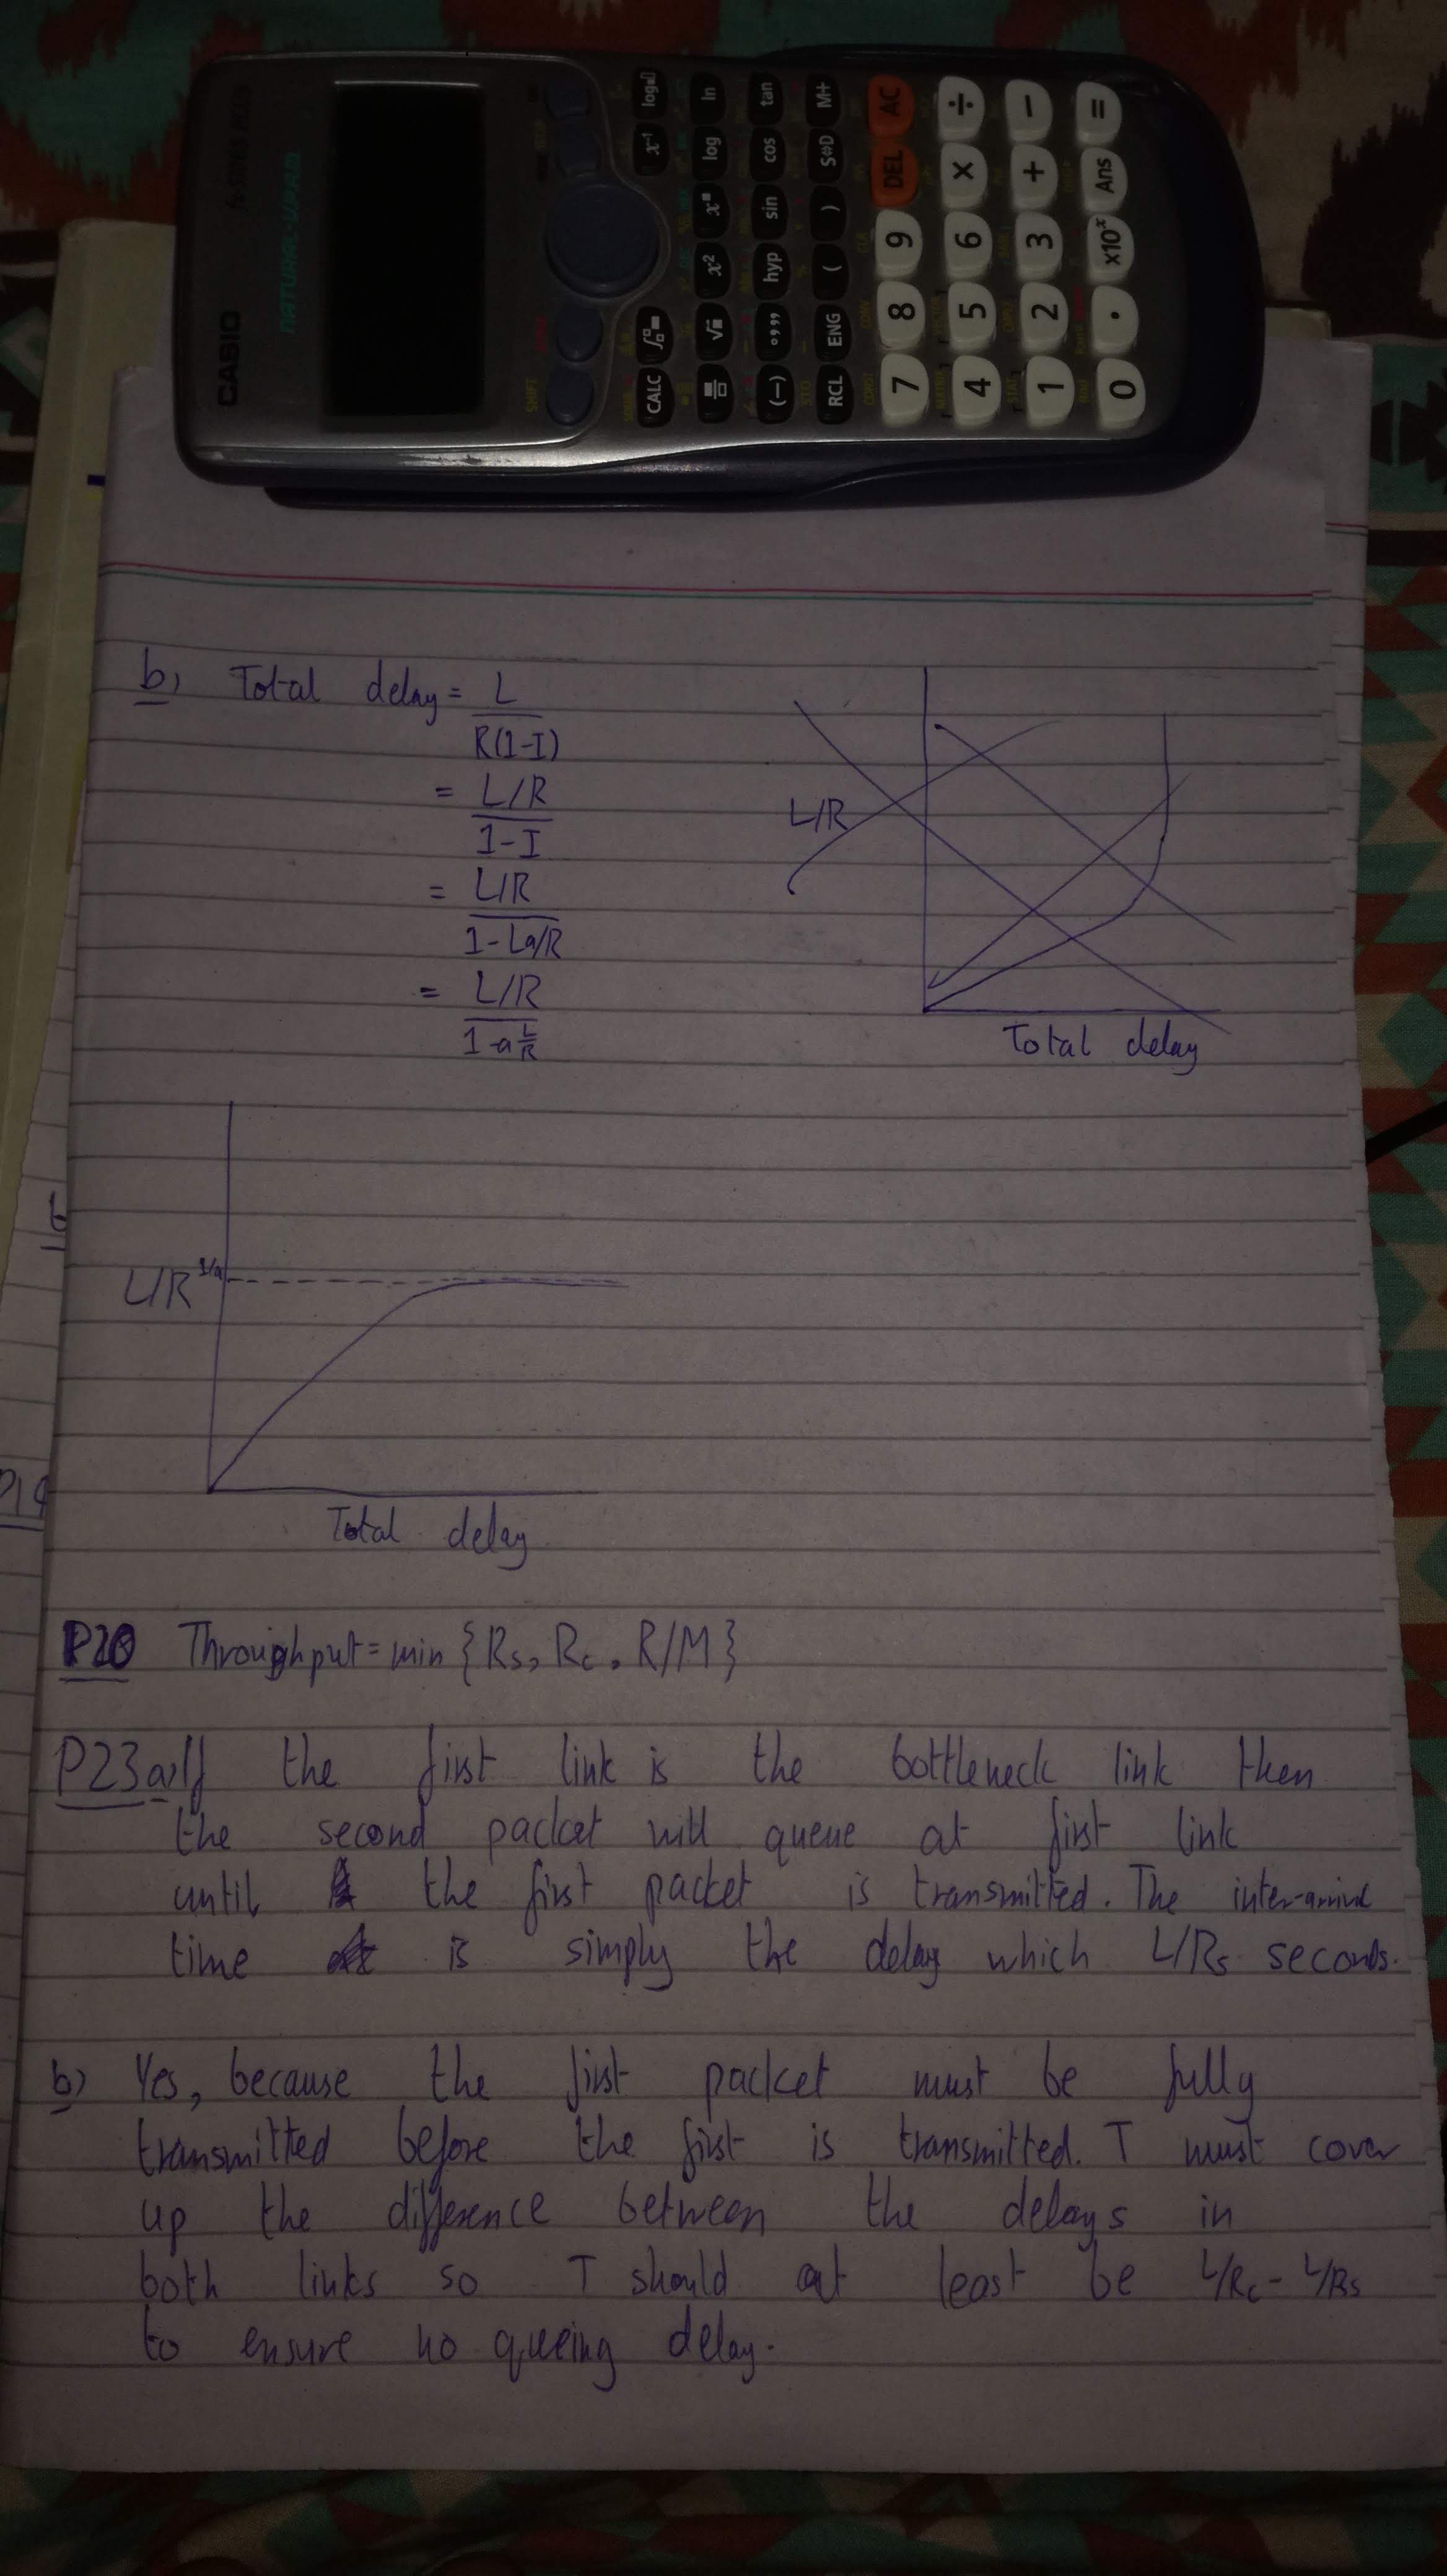 CASIO
NATURAL-V.P.A.M.
SHIFT
CALC
x⁻¹ log
x² log ln
(−) °,,, hyp sin cos tan
RCL ENG ( ) S⇔D M+
7 8 9 DEL AC
4 5 6 × ÷
1 2 3 + −
0 . ×10ˣ Ans =
b, Total delay = L
R(1-I)
= L/R
1-I
= L/R
1-La/R
= L/R
1-a L/R
L/R
Total delay
L/R 1/a
Total delay
P20 Throughput = min {Rs, Rc, R/M}
P23 a, If the first link is the bottleneck link then
the second packet will queue at first link
until the first packet is transmitted. The inter-arrival
time is simply the delay which L/Rs seconds.
b) Yes, because the first packet must be fully
transmitted before the first is transmitted. T must cover
up the difference between the delays in
both links so T should at least be L/Rc - L/Rs
to ensure no queing delay.